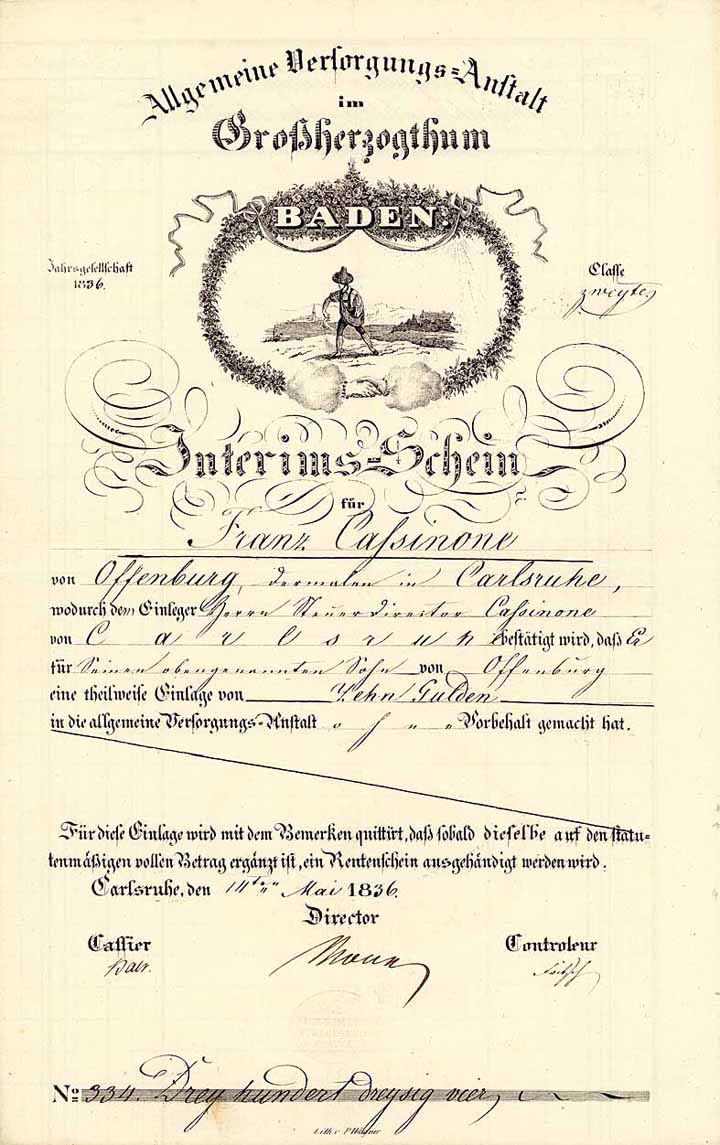 Allgemeine Versorgungs-Anstalt
im
Großherzogthum
BADEN.
Jahrsgesellschaft
1836.
Classe
zweyte
Interims-Schein
für
Franz Cassinone
von Offenburg, dermalen in Carlsruhe,
wodurch dem Einleger Herrn Steuerdirector Cassinone
von Carlsruhe bestätigt wird, daß Er
für Seinen obengenannten Sohn von Offenburg
eine theilweise Einlage von Zehn Gulden
in die allgemeine Versorgungs-Anstalt ohne Vorbehalt gemacht hat.
Für diese Einlage wird mit dem Bemerken quittirt, daß sobald dieselbe auf den statu-
tenmäßigen vollen Betrag ergänzt ist, ein Rentenschein ausgehändigt werden wird.
Carlsruhe, den 14ten Mai 1836.
Director
Cassier
Controleur
No 334. Drey hundert dreysig vier
Lith. v. P. Wagner